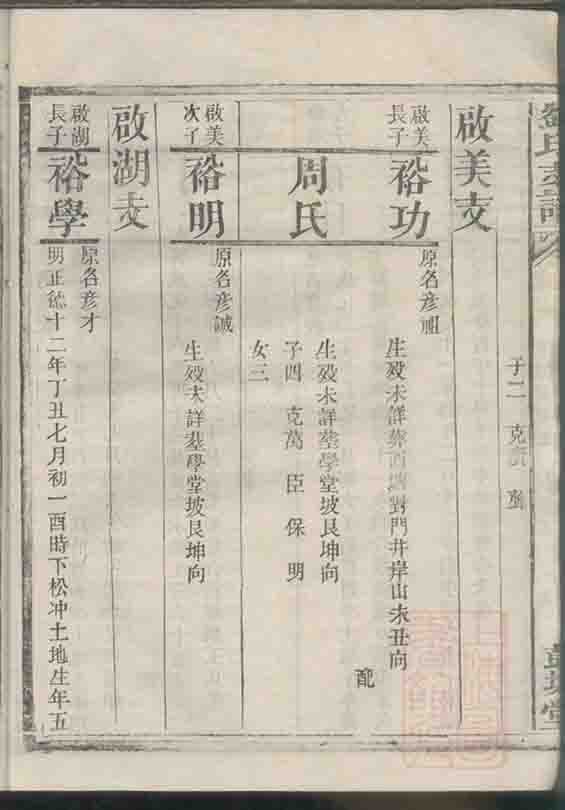 子二 克
啟美支
啟美
長子
裕功
原名彦祖
生殁未詳葬西對門井岸山未丑向
配
周氏
生殁未詳塟學堂坡艮坤向
子四 克萬 臣 保 明
女三
啟美
次子
裕明
原名彦誠
生殁未詳塟學堂坡艮坤向
啟湖支
啟湖
長子
裕學
原名彦才
明正德十二年丁丑七月初一酉時下松冲土地生年五